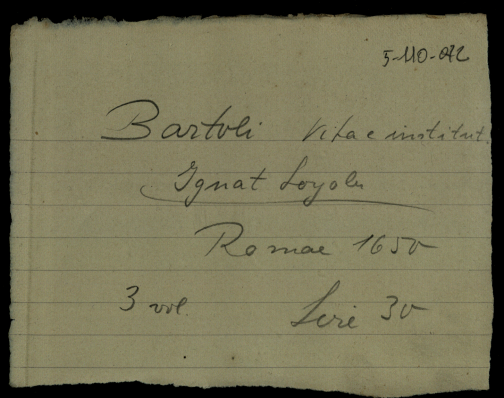 5-110-072
Bartoli Vita e institut.
Ignat Loyola
Romae 1650
3 vol. Lire 30